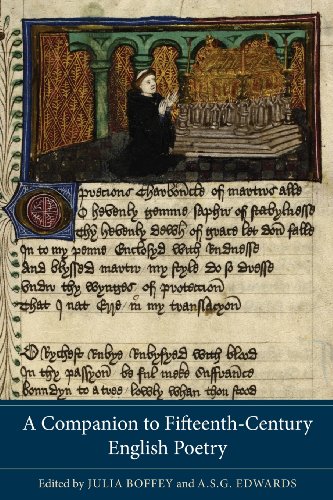 O Precious Charboncle of martirs alle
O hevenly gemme saphir of stabylnesse
Thy hevenly dewh of grace let don falle
In to my penne Enclosyd with Rudnesse
And blyssed martir my style do so dresse
Undir thy wynges of protection
That I nat Erre in my translacyon
O Rychest Rubye Rubyfyed with blood
In thy passyon be ful meke suffrance
Bonndyn to a tree lowly whan thou stood
A Companion to Fifteenth-Century
English Poetry
Edited by JULIA BOFFEY and A.S.G. EDWARDS